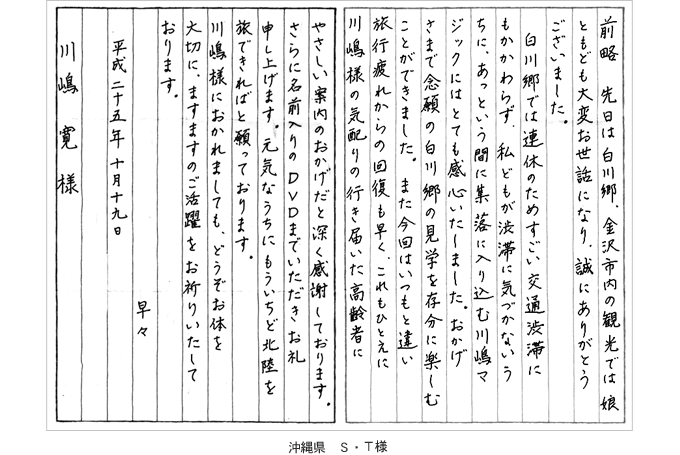 前略　先日は白川郷、金沢市内の観光では娘
ともども大変お世話になり、誠にありがとう
ございました。
白川郷では連休のためすごい交通渋滞に
もかかわらず、私どもが渋滞に気づかないう
ちに、あっという間に集落に入り込む川嶋マ
ジックにはとても感心いたしました。おかげ
さまで念願の白川郷の見学を存分に楽しむ
ことができました。また今回はいつもと違い
旅行疲れからの回復も早く、これもひとえに
川嶋様の気配りの行き届いた高齢者に
やさしい案内のおかげだと深く感謝しております。
さらに名前入りのDVDまでいただきお礼
申し上げます。元気なうちにもういちど北陸を
旅できればと願っております。
川嶋様におかれましても、どうぞお体を
大切に、ますますのご活躍をお祈りいたして
おります。
早々
平成二十五年十月十九日
川嶋寛様
沖縄県　S・T様